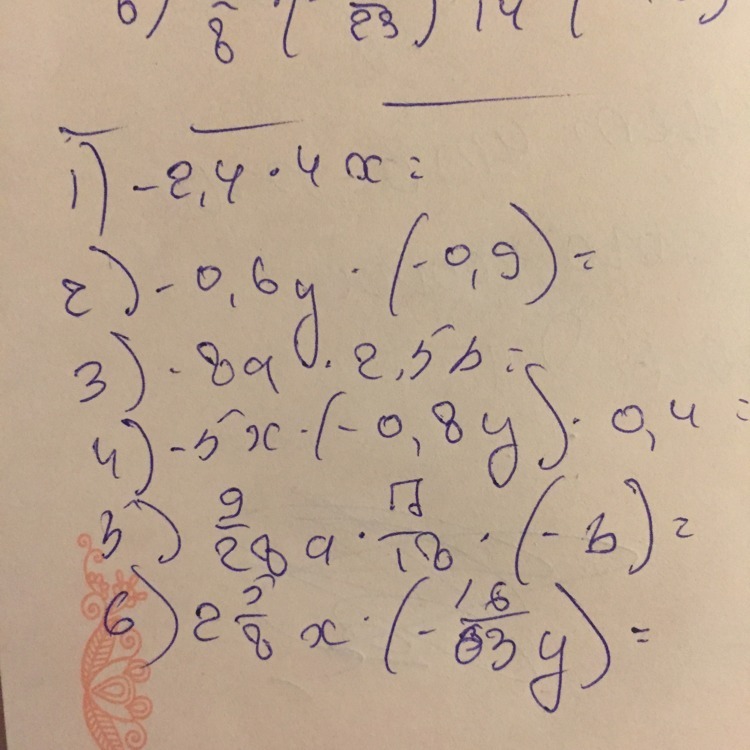 6) /8 ( /23) 14 (
1) -2,4 · 4x =
2) -0,6y · (-0,9) =
3) -8a · 2,5b =
4) -5x · (-0,8y) · 0,4 =
5) 9/28 a · · (-b) =
6) 2 5/8 x · (-16/63 y) =